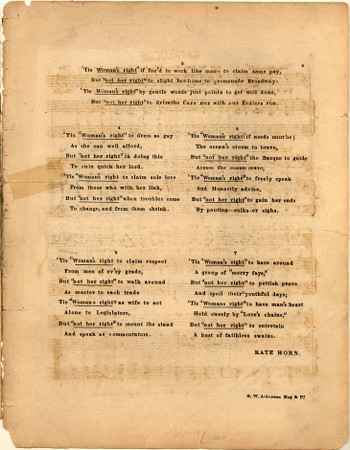 3
'Tis "Woman's right" if forc'd to work like man - to claim same pay,
But "not her right" to slight her home to promenade Broadway:
'Tis "Woman's right" by gentle words just points to get well done,
But "not her right" to drive the Cars nor with our Engines run.
4
'Tis "Woman's right" to dress as gay
As she can well afford,
But "not her right" in doing this
To ruin quick her lord.
'Tis "Woman's right" to claim sole love
From those who with her link,
But "not her right" when troubles come
To change, and from them shrink.
5
'Tis "Woman's right" if needs must be;
The ocean's storm to brave,
But "not her right" the Barque to guide
Across the ocean wave;
'Tis "Woman's right" to freely speak
And Honestly advise,
But "not her right" to gain her ends
By pouting - sulks or sighs.
6
'Tis "Woman's right" to claim respect
From men of ev'ry grade,
But "not her right" to walk around
As master to each trade
'Tis "Womans right" as wife to act
Alone to Legislators,
But "not her right" to mount the stand
And speak as commentators.
7
'Tis "Woman's right" to have around
A group of "merry fays,"
But "not her right" to pettish prove
And spoil their youthful days;
'Tis "Womans right" to have man's heart
Held surely by "Love's chains,"
But "not her right" to entertain
A host of faithless swains.
KATE HORN.
S. W. Ackerman Eng &